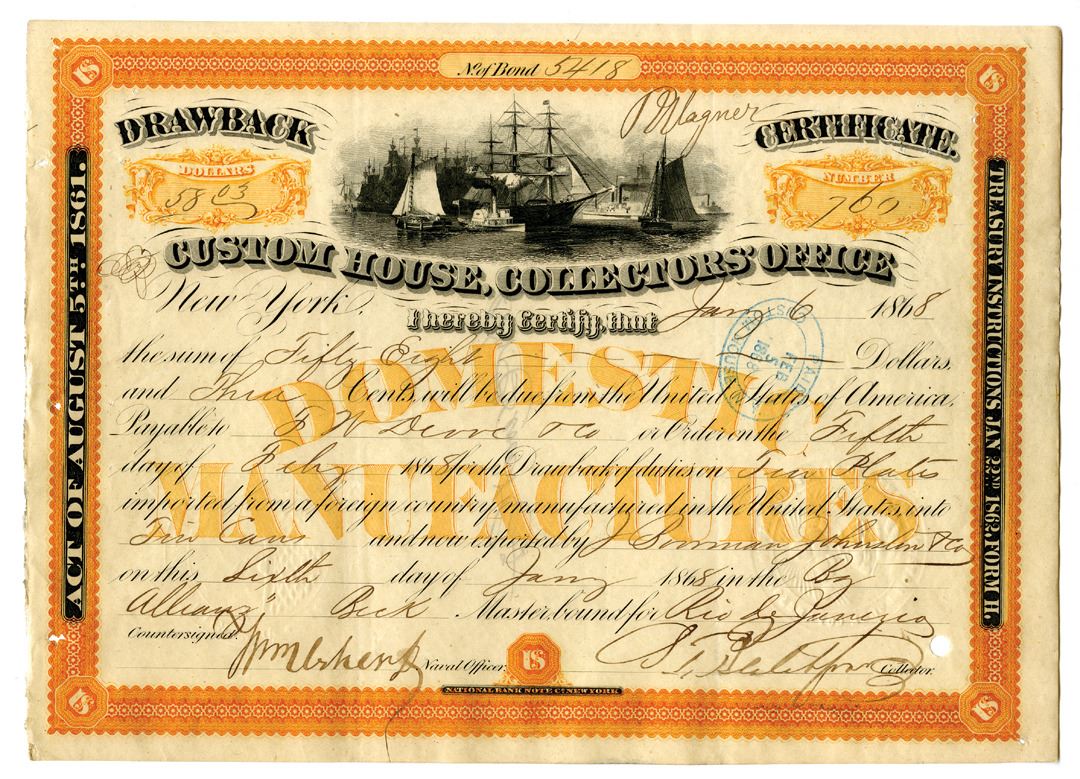 No. of Bond 5418
US
US
DRAWBACK
CERTIFICATE.
DOLLARS
58 03
NUMBER
760
Wagner
CUSTOM HOUSE, COLLECTORS' OFFICE
New York, Jany 6 1868
I hereby Certify, that
the sum of Fifty Eight Dollars,
and Three Cents, will be due from the United States of America,
Payable to F W Devoe & Co or Order on the Fifth
day of Feby 1868 for the Drawback of duties on Tin Plates
imported from a foreign country manufactured in the United States, into
Tin Cans and now exported by J Dorman Johnston & Co
on this Sixth day of Jany 1868 in the Bg
Allianz, Beck Master bound for Rio de Janeiro
Countersigned,
Naval Officer.
US
Collector.
NATIONAL BANK NOTE Co. NEW YORK
US
US
DOMESTIC
MANUFACTURES
ACT OF AUGUST 5TH. 1861.
TREASURY INSTRUCTIONS, JAN 22ND 1863, FORM H.
PAID
FEB 5
1868
CUSTOM HOUSE